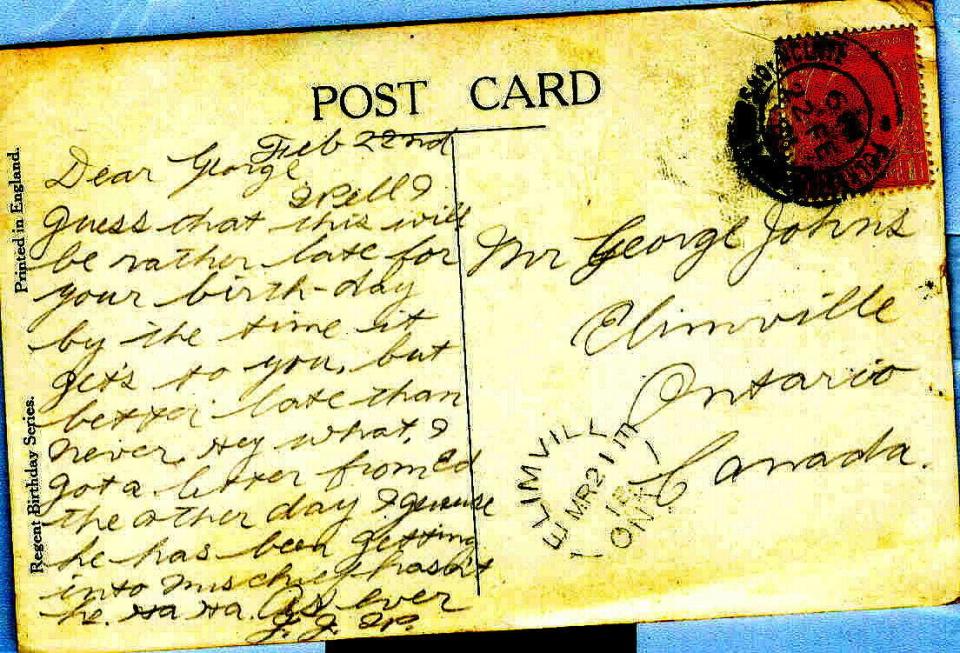 POST CARD
Printed in England.
Regent Birthday Series.
Feb 22nd
Dear George
Well I
guess that this will
be rather late for
your birth-day
by the time it
gets to you, but
better late than
never, Hey what, I
got a letter from Ed
the other day I
he has been getting
into mischief hasn't
he. Ha Ha. As ever
Mr George Johns
Elimville
Ontario
Canada.
ELIMVILLE
MR 21
ONT
22 FE